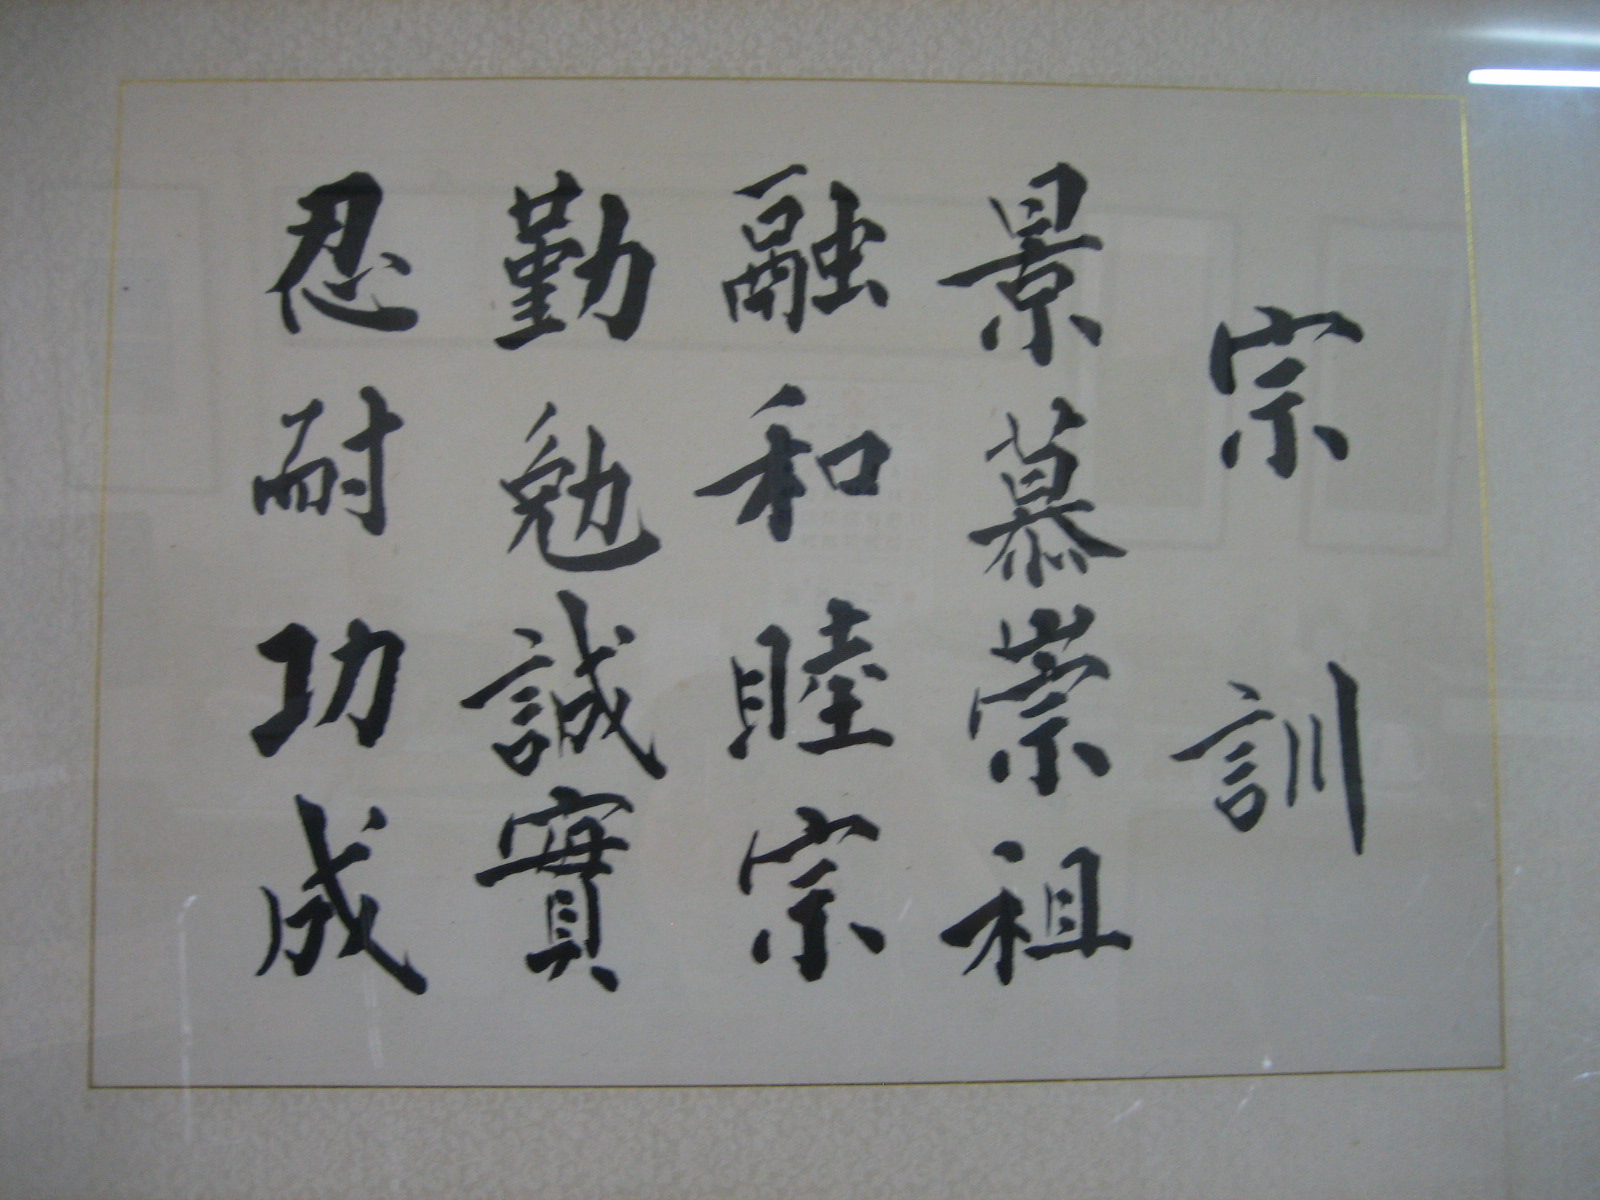 宗訓
景慕崇祖
融和睦宗
勤勉誠實
忍耐功成